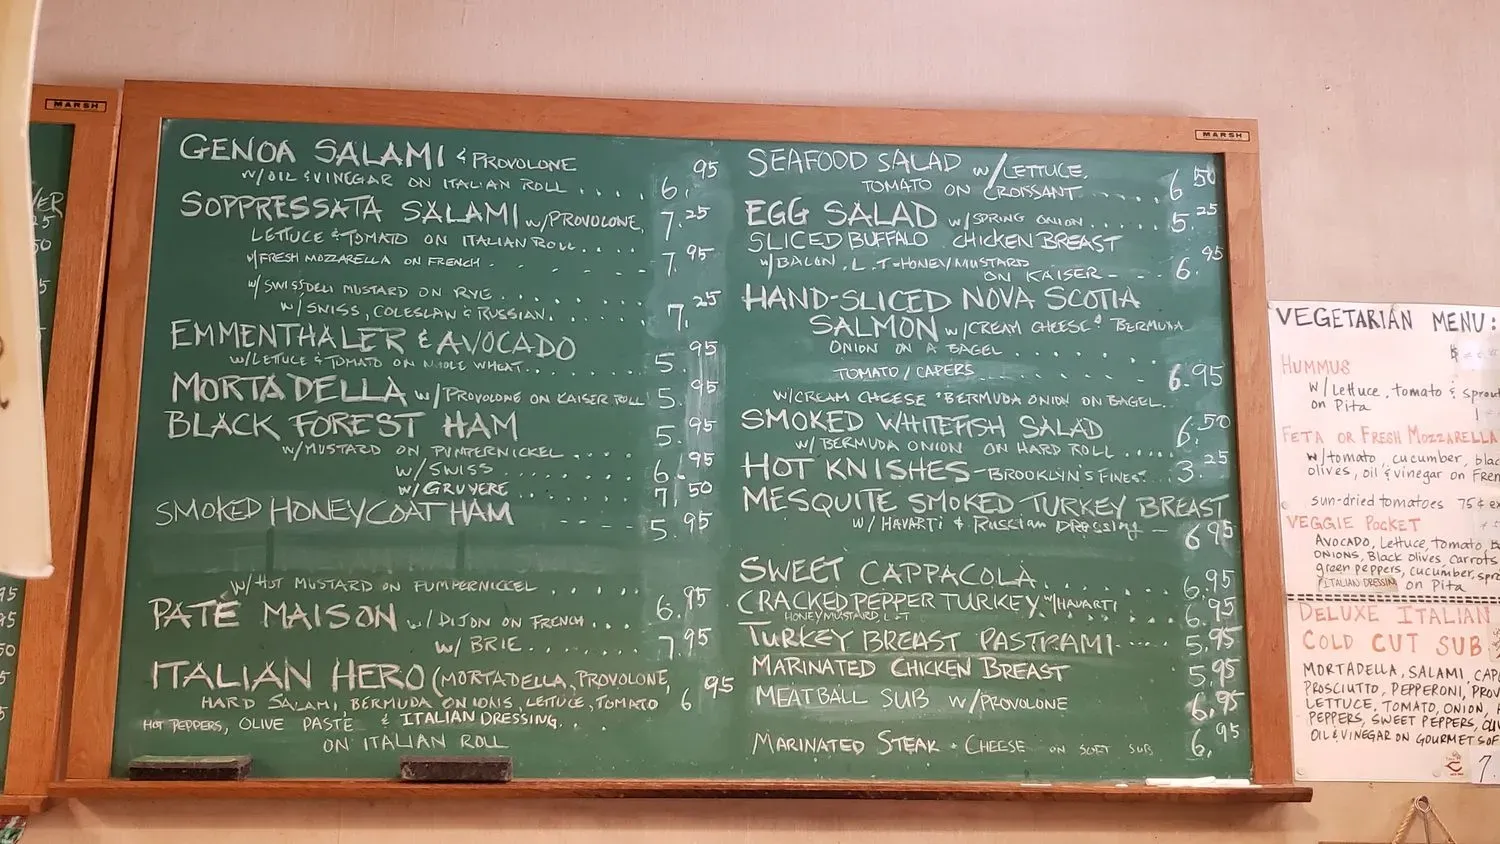 MARSH
MARSH
GENOA SALAMI & PROVOLONE
W/OIL & VINEGAR ON ITALIAN ROLL .... 6.95
SOPPRESSATA SALAMI W/PROVOLONE, 7.25
LETTUCE & TOMATO ON ITALIAN ROLL....
W/FRESH MOZZARELLA ON FRENCH . . . . . 7.95
W/SWISS DELI MUSTARD ON RYE ........
W/SWISS, COLESLAW & RUSSIAN........ 7.25
EMMENTHALER & AVOCADO
W/LETTUCE & TOMATO ON WHOLE WHEAT.... 5.95
MORTADELLA W/PROVOLONE ON KAISER ROLL 5.95
BLACK FOREST HAM 5.95
W/MUSTARD ON PUMPERNICKEL ....
W/SWISS ........ 6.95
W/GRUYERE ........ 7.50
SMOKED HONEYCOAT HAM ---- 5.95
W/HOT MUSTARD ON PUMPERNICKEL ......
PATE MAISON W/DIJON ON FRENCH... 6.95
W/ BRIE ...... 7.95
ITALIAN HERO (MORTADELLA, PROVOLONE,
HARD SALAMI, BERMUDA ONIONS, LETTUCE, TOMATO 6.95
HOT PEPPERS, OLIVE PASTE & ITALIAN DRESSING. .
ON ITALIAN ROLL
SEAFOOD SALAD W/LETTUCE,
TOMATO ON CROISSANT ...... 6.50
EGG SALAD W/SPRING ONION...... 5.25
SLICED BUFFALO CHICKEN BREAST
W/BACON, L, T = HONEY/MUSTARD
ON KAISER --- 6.95
HAND-SLICED NOVA SCOTIA
SALMON W/CREAM CHEESE & BERMUDA
ONION ON A BAGEL ......
TOMATO / CAPERS ........ 6.95
W/CREAM CHEESE & BERMUDA ONION ON BAGEL.
SMOKED WHITEFISH SALAD 6.50
W/BERMUDA ONION ON HARD ROLL .....
HOT KNISHES-BROOKLYN'S FINEST 3.25
MESQUITE SMOKED TURKEY BREAST
W/ HAVARTI & RUSSIAN DRESSING — 6.95
SWEET CAPPACOLA...... 6.95
CRACKED PEPPER TURKEY W/HAVARTI
HONEY MUSTARD, L & T ..... 6.95
TURKEY BREAST PASTRAMI---- 5.95
MARINATED CHICKEN BREAST 5.95
MEATBALL SUB W/PROVOLONE 6.95
MARINATED STEAK & CHEESE ON SOFT SUB 6.95
VEGETARIAN MENU:
HUMMUS
W/Lettuce, tomato & sprout
on Pita
FETA OR FRESH MOZZARELLA
W/tomato, cucumber, blac
olives, oil & vinegar on Fren
sun-dried tomatoes 75¢ ex
VEGGIE POCKET
AVOCADO, Lettuce, tomato,
ONIONS, Black olives, carrots
green peppers, cucumber, spr
ITALIAN DRESSING on Pita
DELUXE ITALIAN
COLD CUT SUB
MORTADELLA, SALAMI, CAP
PROSCIUTTO, PEPPERONI, PROV
LETTUCE, TOMATO, ONION,
PEPPERS, SWEET PEPPERS,
OIL & VINEGAR ON GOURMET SOF
7.